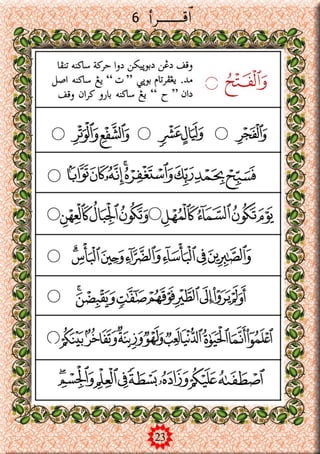 ٱقـــرأ 6
وقف دغن دبوييكن دوا حركة ساكنه تنقا
مد. يغقرتام بويي ” ت “ يغ ساكنه اصل
دان ” ح “ يغ ساكنه بارو كران وقف
وَٱلْفَتْحُ ○
وَٱلْفَجْرِ ○ وَلَيَالٍ عَشْرٍ ○ وَٱلشَّفْعِ وَٱلْوَتْرِ ○
فَسَبِّحْ بِحَمْدِ رَبِّكَ وَٱسْتَغْفِرْهُ ۚ إِنَّهُۥ كَانَ تَوَّابًۢا ○
يَوْمَ تَكُونُ ٱلسَّمَآءُ كَٱلْمُهْلِ ○ وَتَكُونُ ٱلْجِبَالُ كَٱلْعِهْنِ ○
وَٱلصَّٰبِرِينَ فِى ٱلْبَأْسَآءِ وَٱلضَّرَّآءِ وَحِينَ ٱلْبَأْسِ ۗ ○
أَوَلَمْ يَرَوْا۟ إِلَى ٱلطَّيْرِ فَوْقَهُمْ صَٰٓفَّٰتٍ وَيَقْبِضْنَ ۚ ○
ٱعْلَمُوٓا۟ أَنَّمَا ٱلْحَيَوٰةُ ٱلدُّنْيَا لَعِبٌ وَلَهْوٌ وَزِينَةٌ وَتَفَاخُرٌۢ بَيْنَكُمْ ○
ٱصْطَفَىٰهُ عَلَيْكُمْ وَزَادَهُۥ بَسْطَةً فِى ٱلْعِلْمِ وَٱلْجِسْمِ ۖ
23